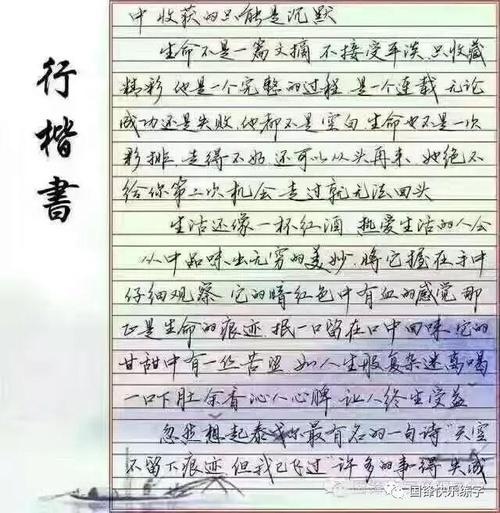 行楷書
中收获的只能是沉默
生命不是一篇文摘 不接受平淡 只收藏
精彩 他是一个完整的过程 是一个连载 无论
成功还是失败 他都不是空白 生命也不是一次
彩排 走得不好 还可以从头再来 她绝不
给你第二次机会 走过就无法回头
生活还像一杯红酒 热爱生活的人会
从中品味出无穷的美妙 将它握在手中
仔细观察 它的暗红色中有血的感觉 那
正是生命的痕迹 抿一口留在口中回味 它的
甘甜中有一丝苦涩 如人生般复杂迷离 喝
一口下肚 余香沁人心脾 让人终生受益
忽我想起泰戈尔最有名的一句诗“天空
不留下痕迹 但我已飞过”许多的事得失成
国锋快乐练字